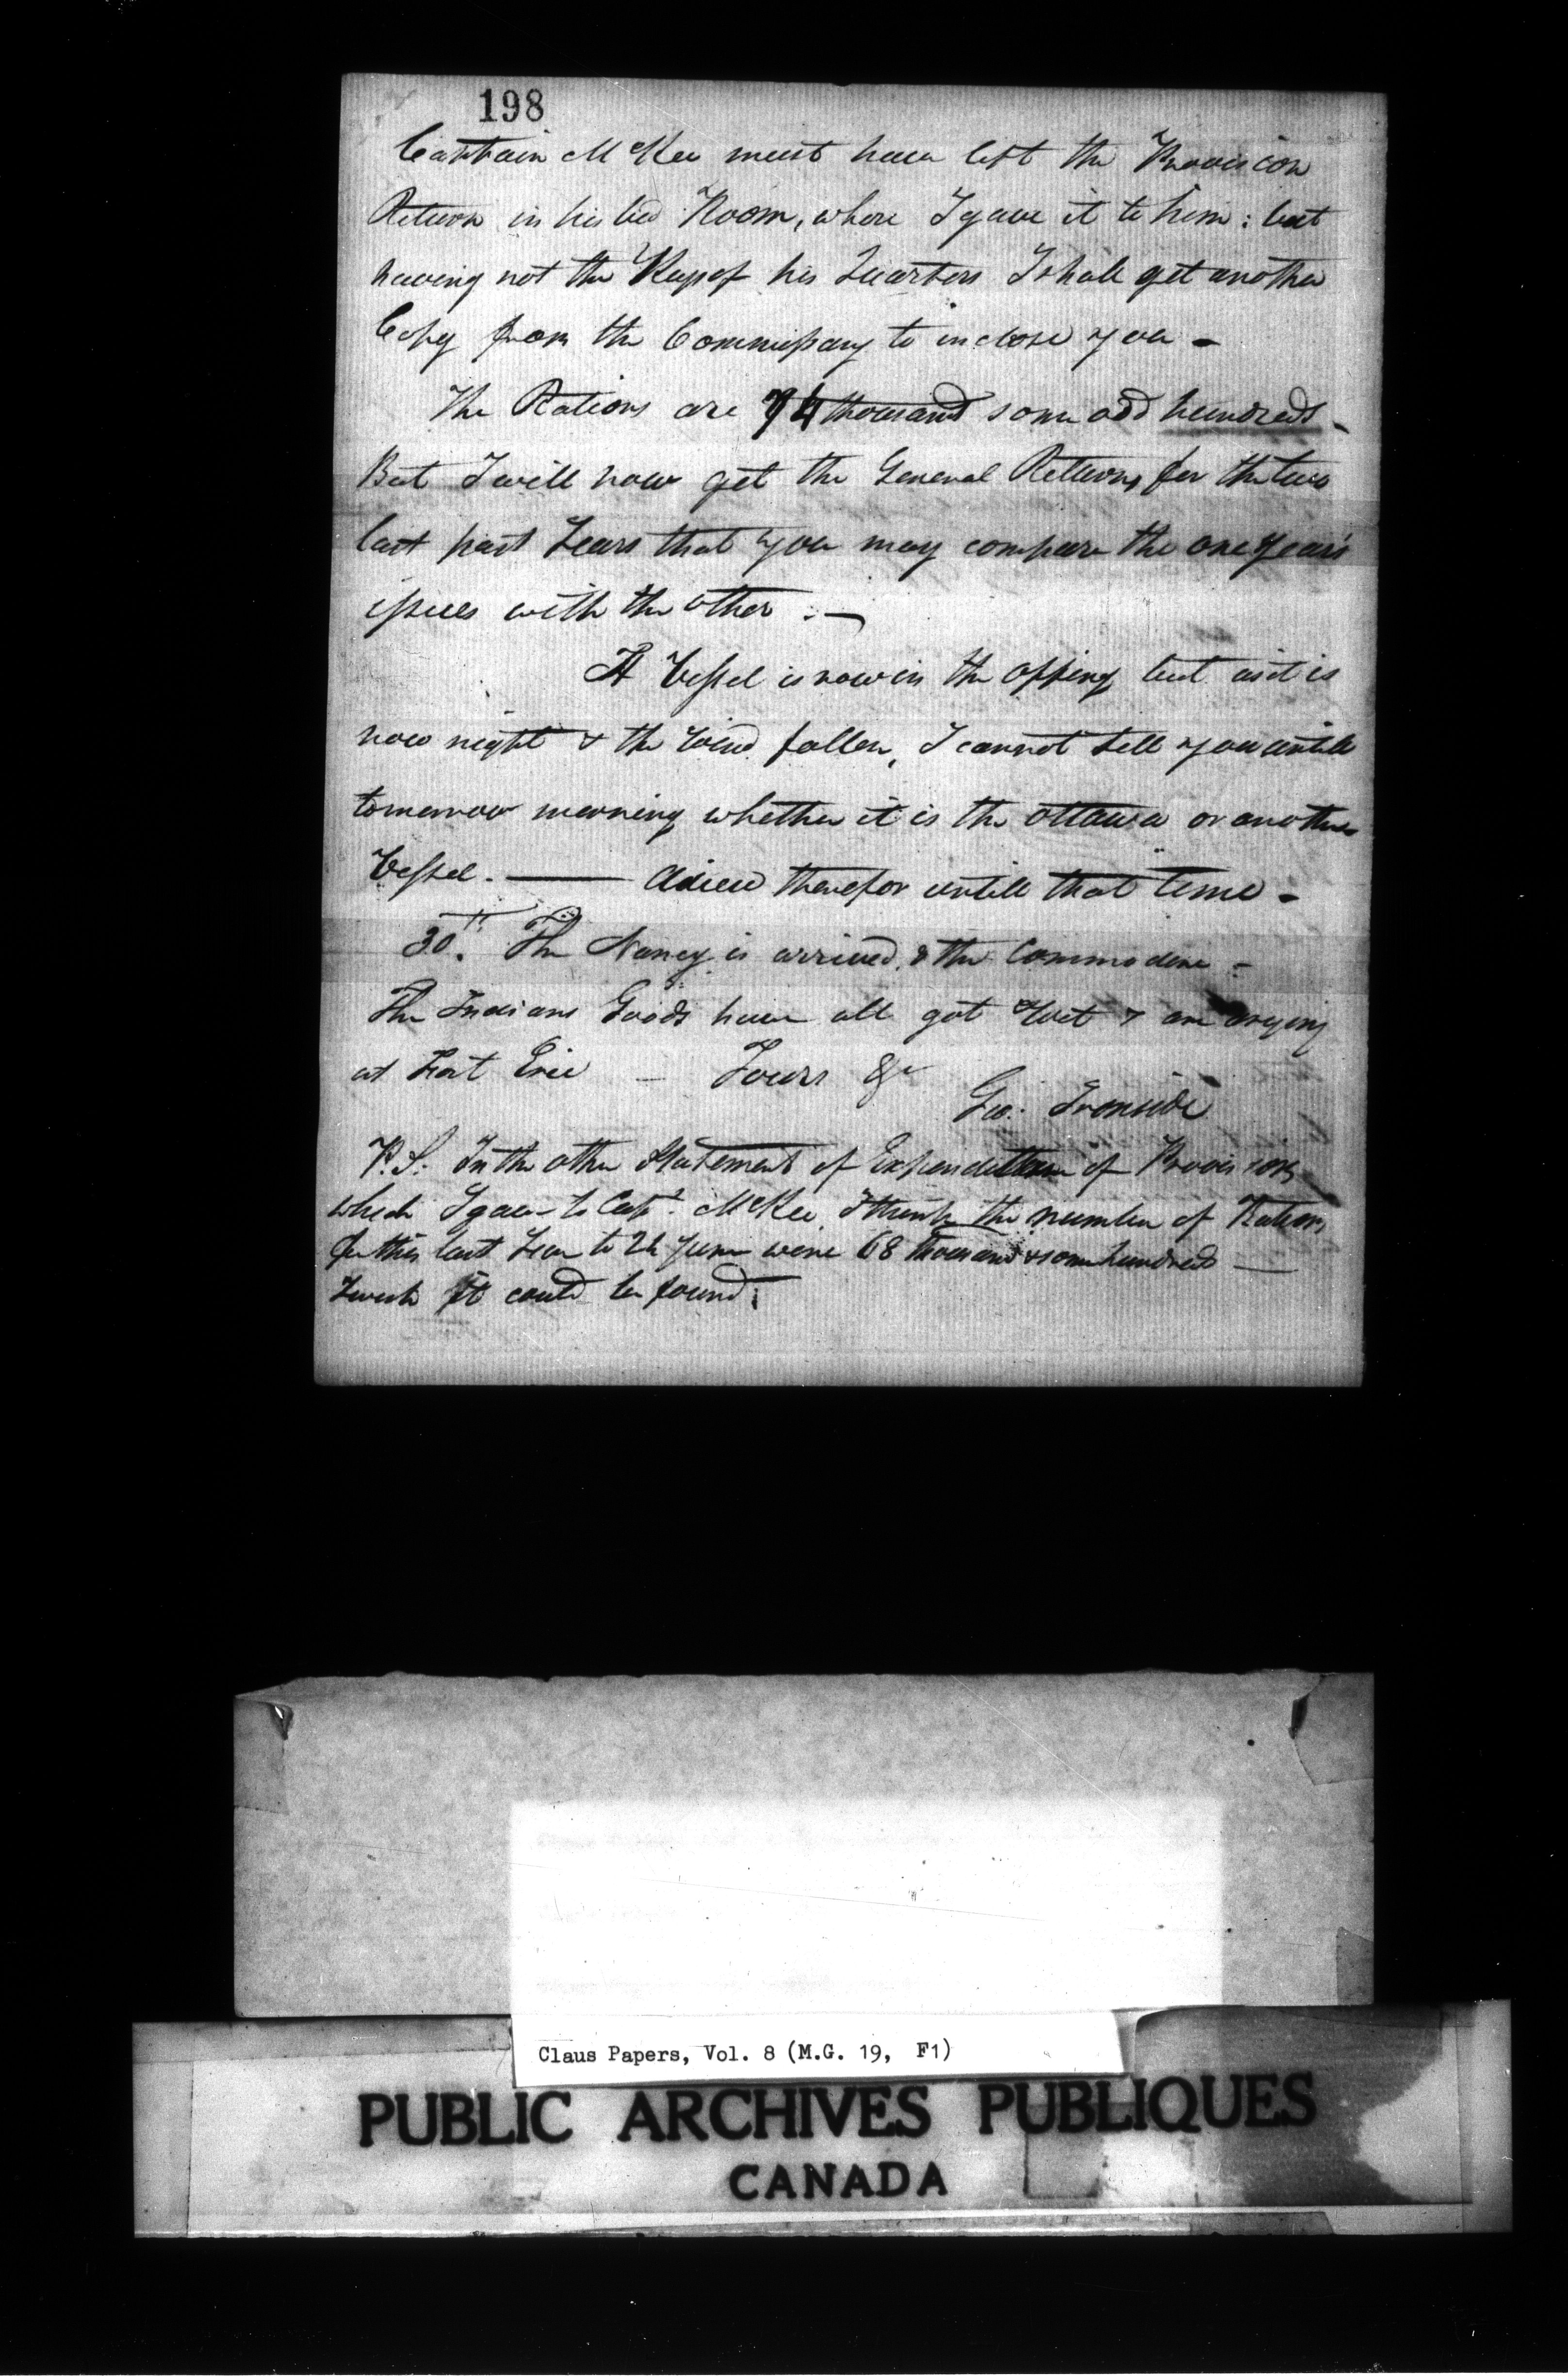 198
Captain McKee must have left the Provision
Return in his bed Room, where I gave it to him; but
having not the Key of his Quarters I shall get another
Copy from the Commissary to inclose you –
The Rations are 74 thousand some odd hundreds –
But I will now get the General Returns for the two
last past Years that you may compare the one Year's
issues with the other . —
A Vessel is now in the offing but as it is
now night & the Wind fallen, I cannot tell you untill
tomorrow morning whether it is the Ottawa or another
Vessel. —— Adieu therefor untill that time –
30th. The Nancy is arrived, & the Commodore –
The Indians Goods have all got Wet & are drying
at Fort Erie – Yours &c
Geo: Ironside
P.S. In the other Statement of Expenditure of Provisions
which I gave to Capt. McKee I think the number of Rations
for this last Year to 24 June were 68 thousand & some hundreds —
I wish it could be found.
Claus Papers, Vol. 8 (M.G. 19, F1)
PUBLIC ARCHIVES PUBLIQUES
CANADA